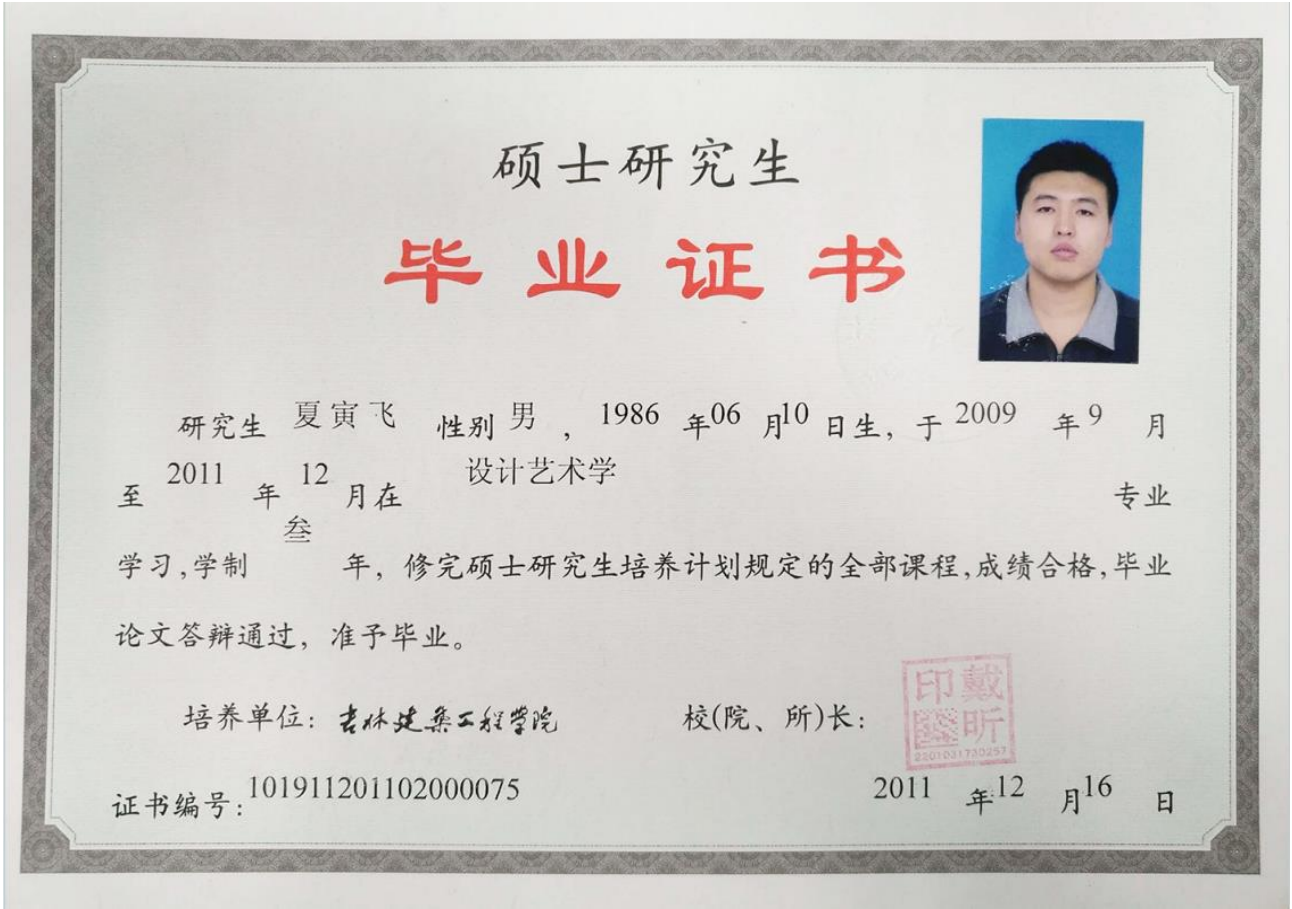 硕士研究生
毕业证书
研究生 夏寅飞 性别 男 , 1986 年 06 月 10 日生, 于 2009 年 9 月
至 2011 年 12 月在 设计艺术学 专业
学习,学制 叁 年, 修完硕士研究生培养计划规定的全部课程,成绩合格,毕业
论文答辩通过, 准予毕业。
培养单位: 吉林建筑工程学院 校(院、所)长: 戴昕印
2201031730257
证书编号: 101911201102000075 2011 年 12 月 16 日